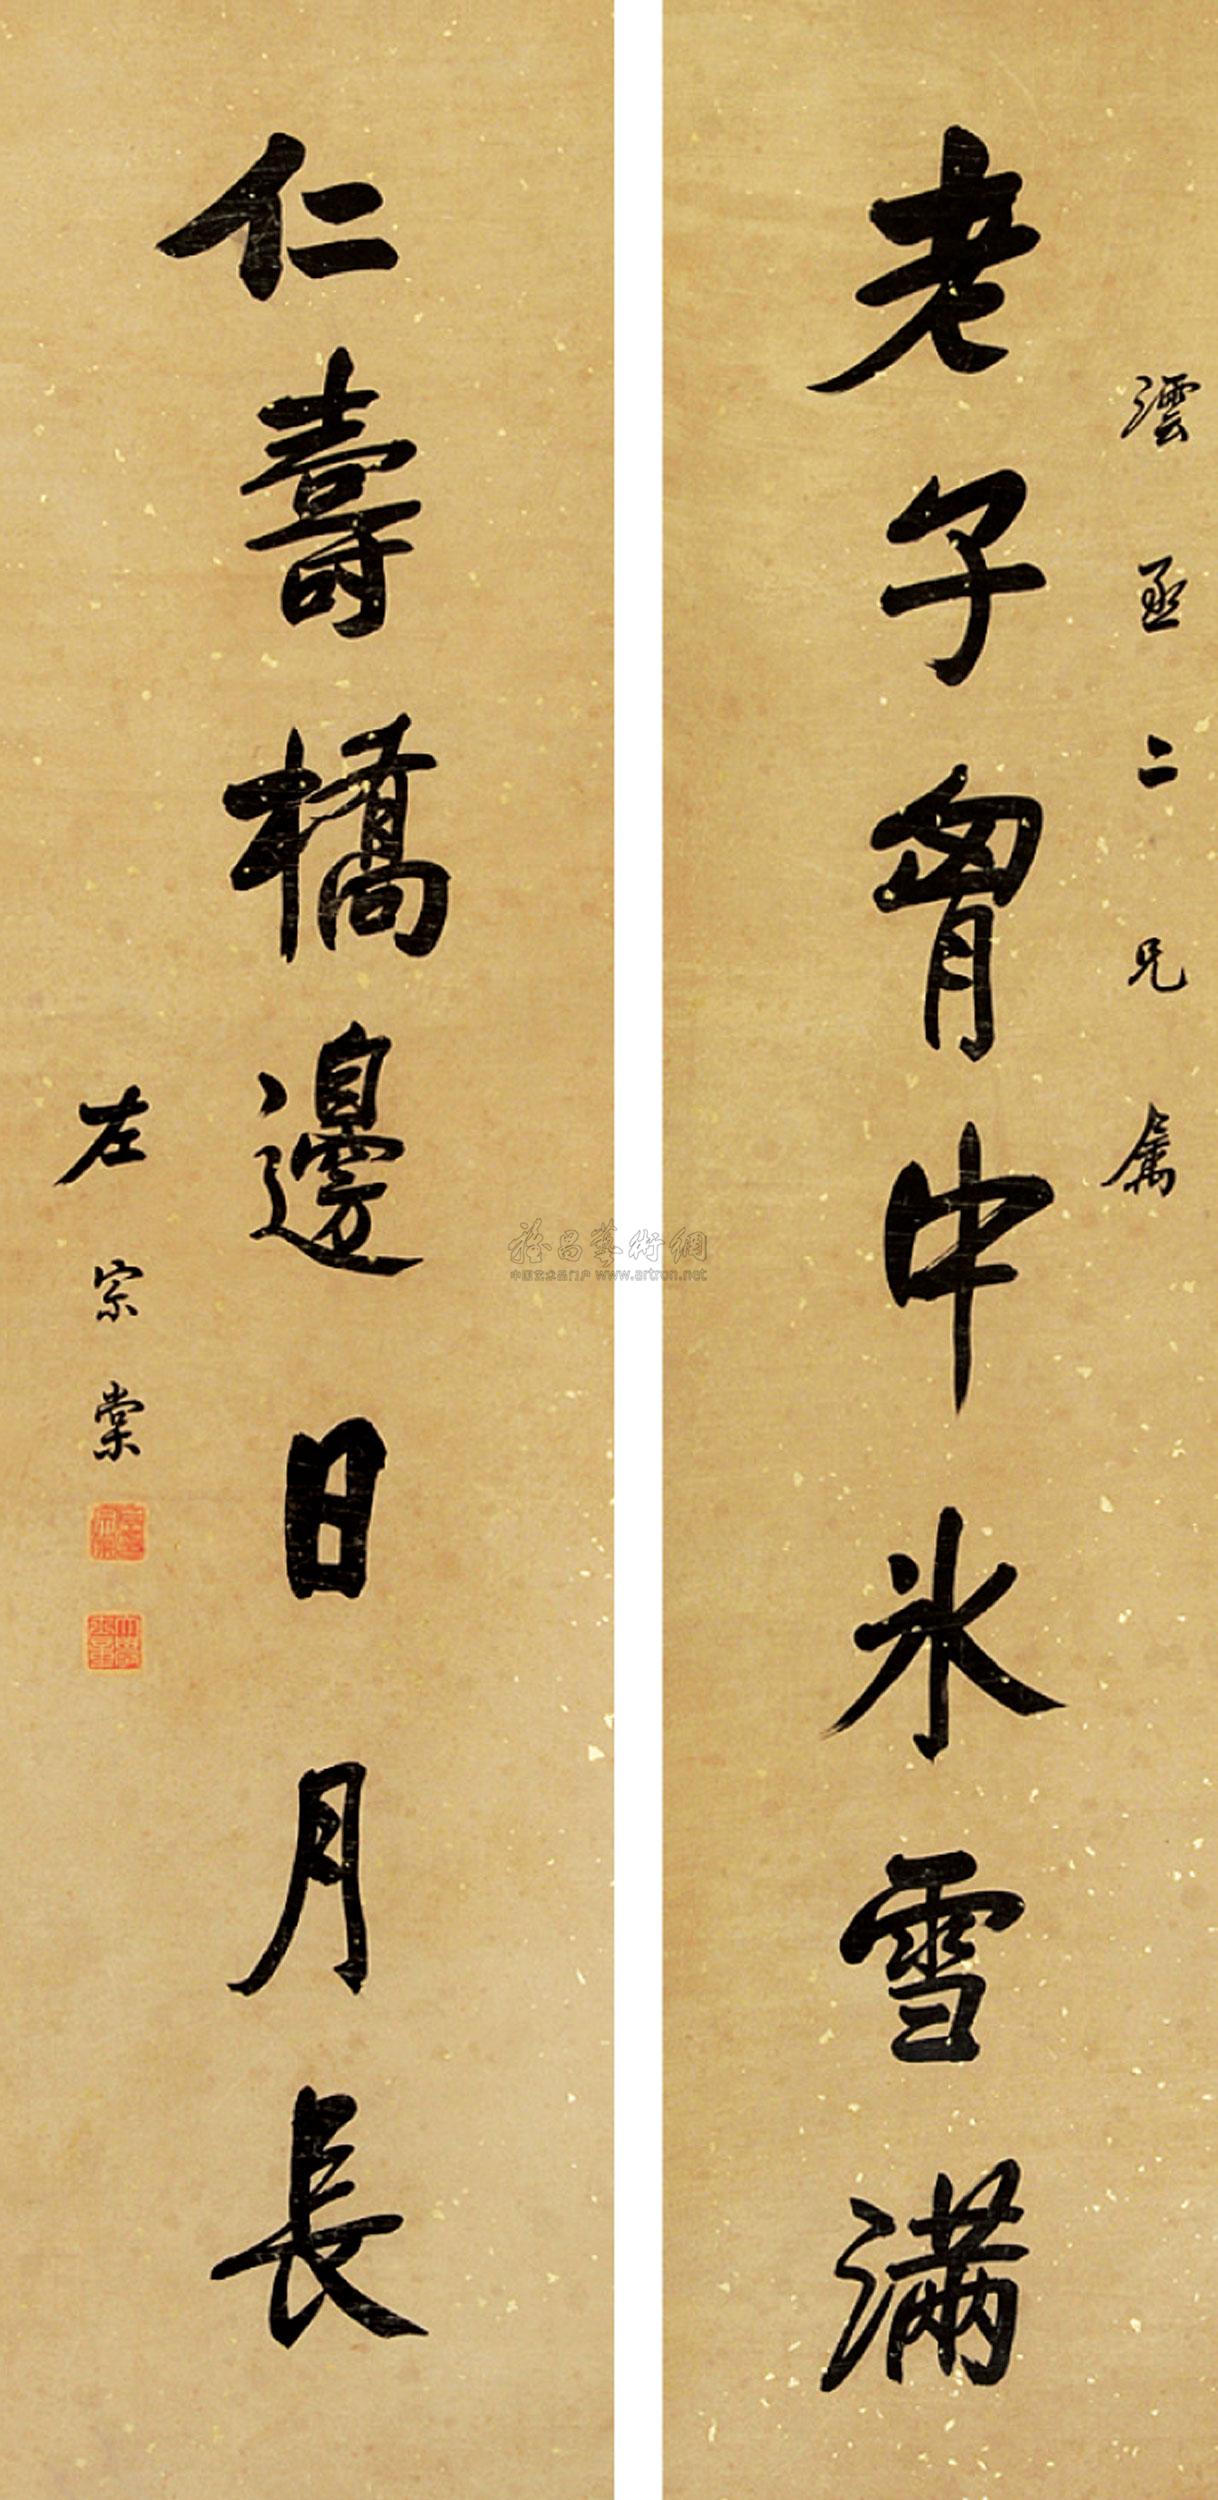 澐丞二兄屬
老子胷中氷雪滿
仁壽橋邊日月長
左宗棠
雅昌藝術網
中国艺术品门户 www.artron.net